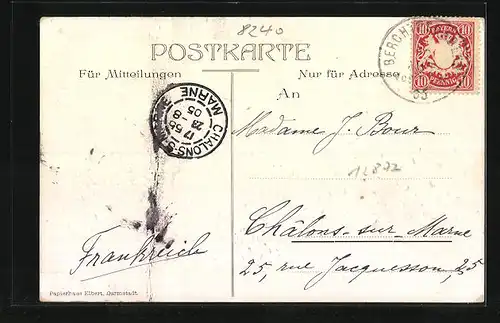 8240
POSTKARTE
Für Mitteilungen
Nur für Adresse
An
BERCH
BAYERN
10 10
PFENNIG
CHALONS-S-MARNE
MARNE
05
Madame J. Bour
12872
Châlons-sur-Marne
25, rue Jacquesson, 25
Frankreich
Papierhaus Elbert, Darmstadt.